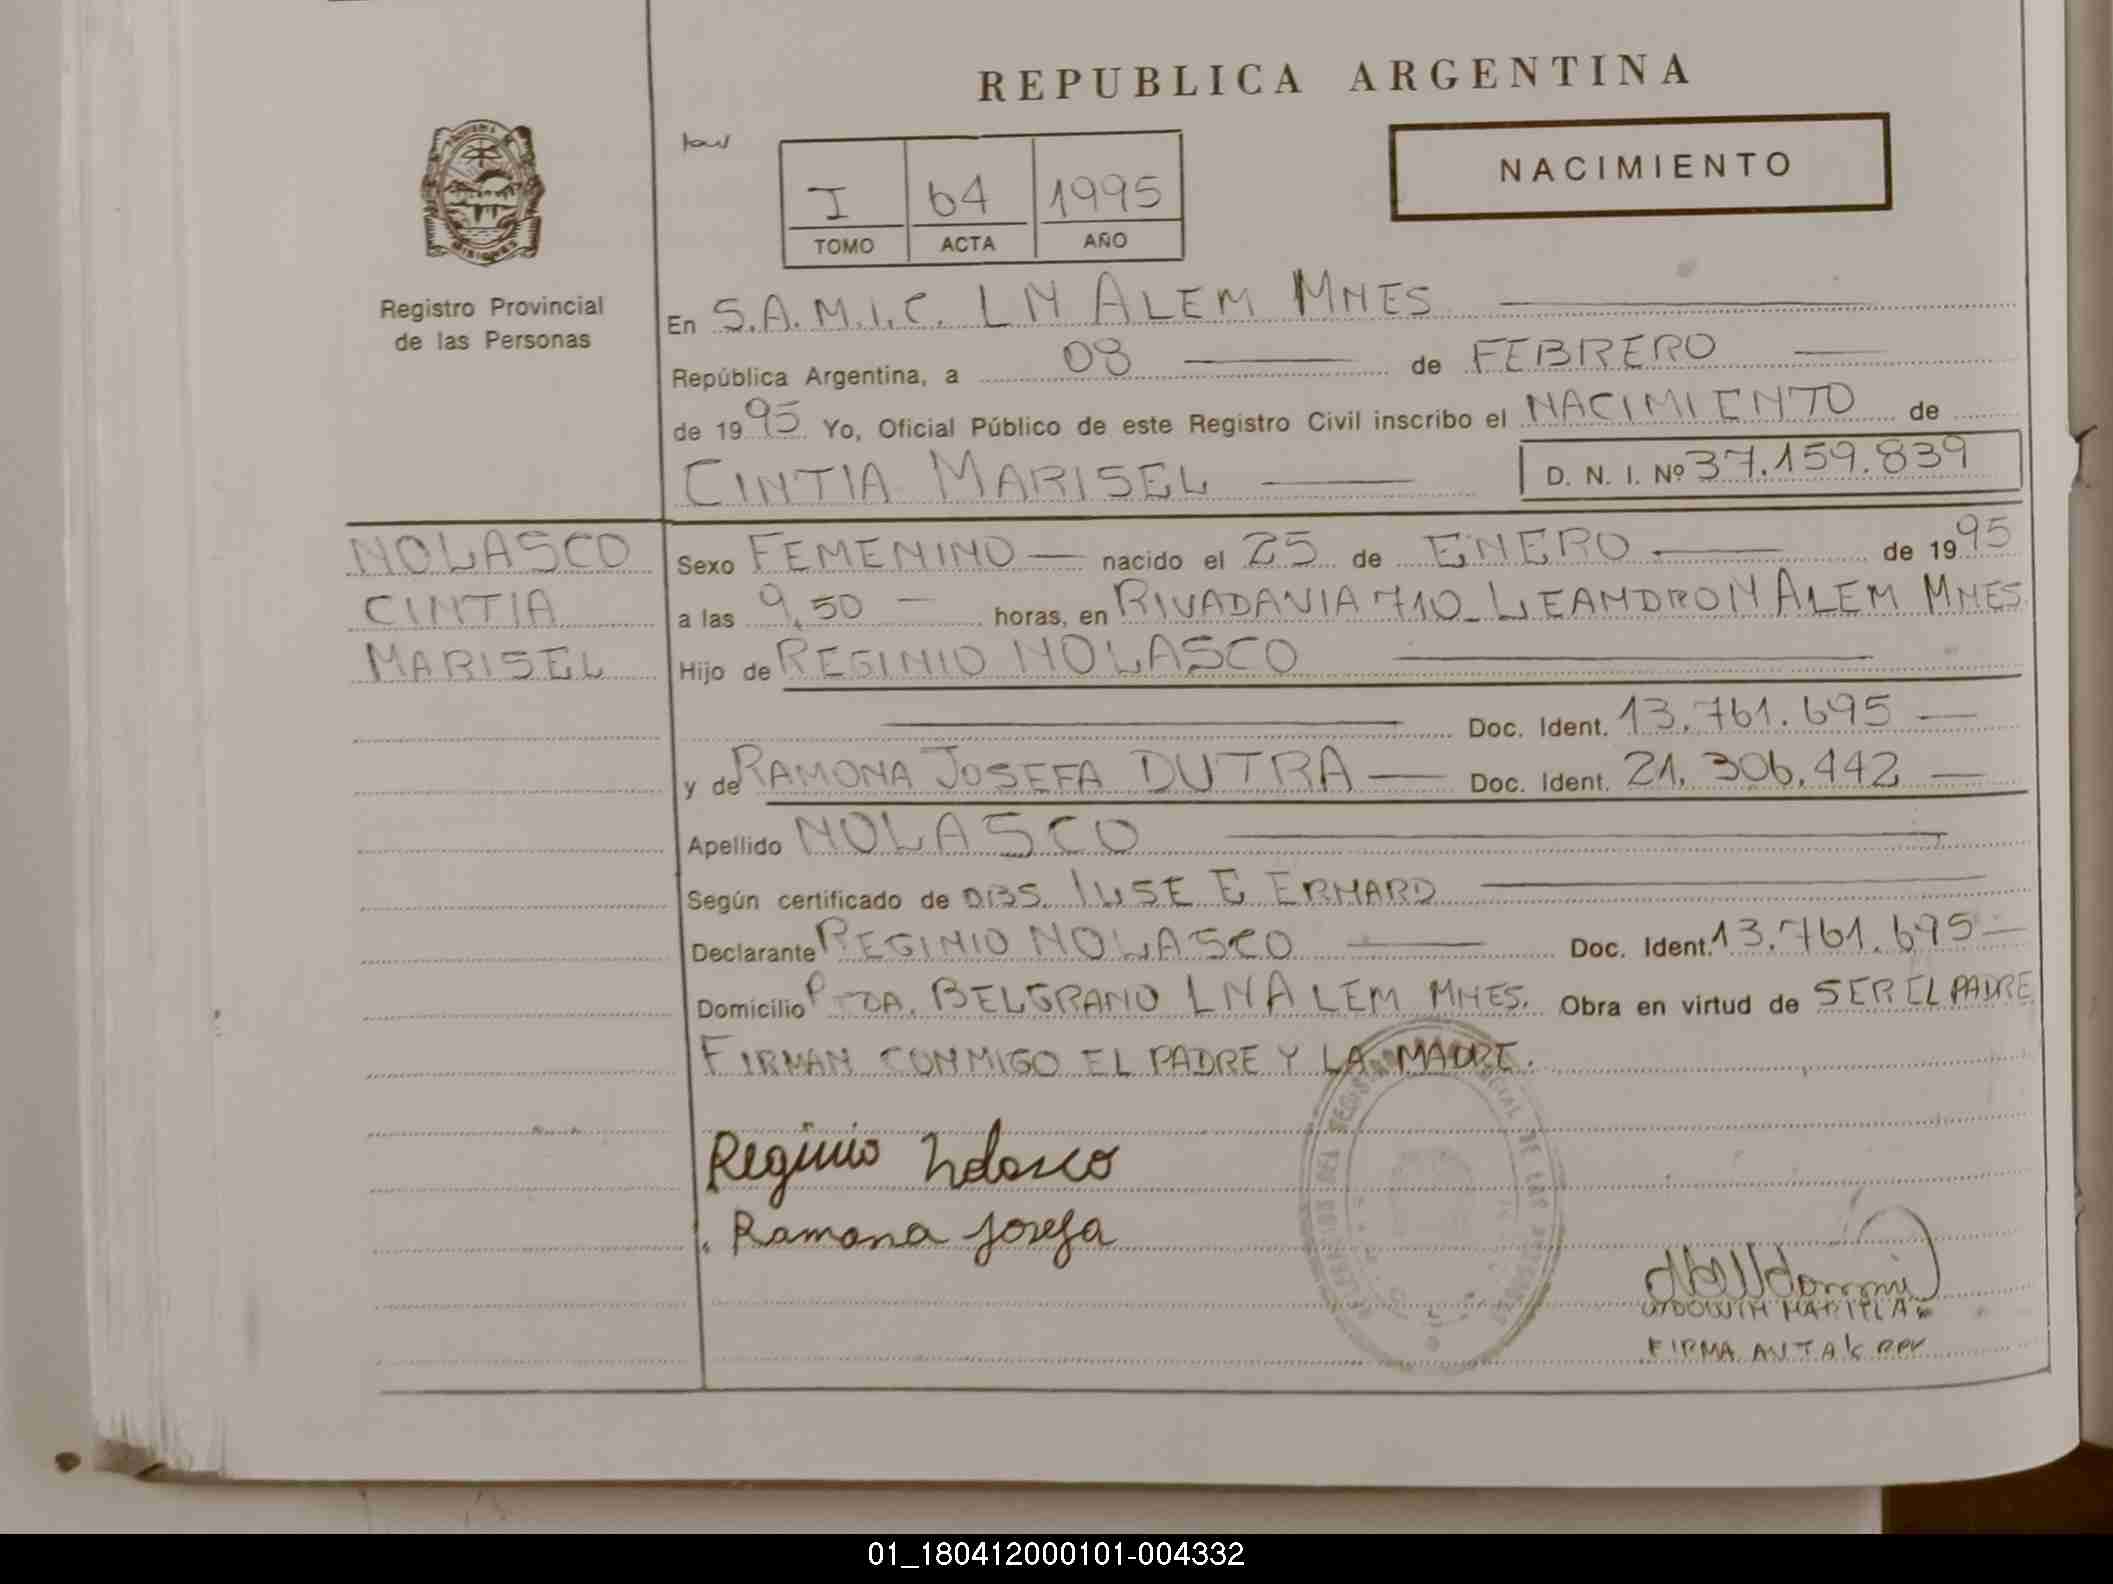 REPUBLICA ARGENTINA
NACIMIENTO
I 64 1995
TOMO ACTA AÑO
Registro Provincial
de las Personas
En S.A.M.I.C. L N ALEM MNES
República Argentina, a 08 de FEBRERO
de 1995 Yo, Oficial Público de este Registro Civil inscribo el NACIMIENTO de
CINTIA MARISEL D. N. I. Nº 37.159.839
NOLASCO
CINTIA
MARISEL
Sexo FEMENINO nacido el 25 de ENERO de 1995
a las 9,50 horas, en RIVADAVIA 710_ LEANDRO N ALEM MNES
Hijo de REGINIO NOLASCO
Doc. Ident. 13.761.695
y de RAMONA JOSEFA DUTRA Doc. Ident. 21.306.442
Apellido NOLASCO
Según certificado de OBS. ILSE E ERHARD
Declarante REGINIO NOLASCO Doc. Ident. 13.761.695
Domicilio PTDA. BELGRANO L N ALEM MNES. Obra en virtud de SER EL PADRE
FIRMAN CONMIGO EL PADRE Y LA MADRE.
Reginio Nolasco
Ramona Josefa
FIRMA
01_180412000101-004332